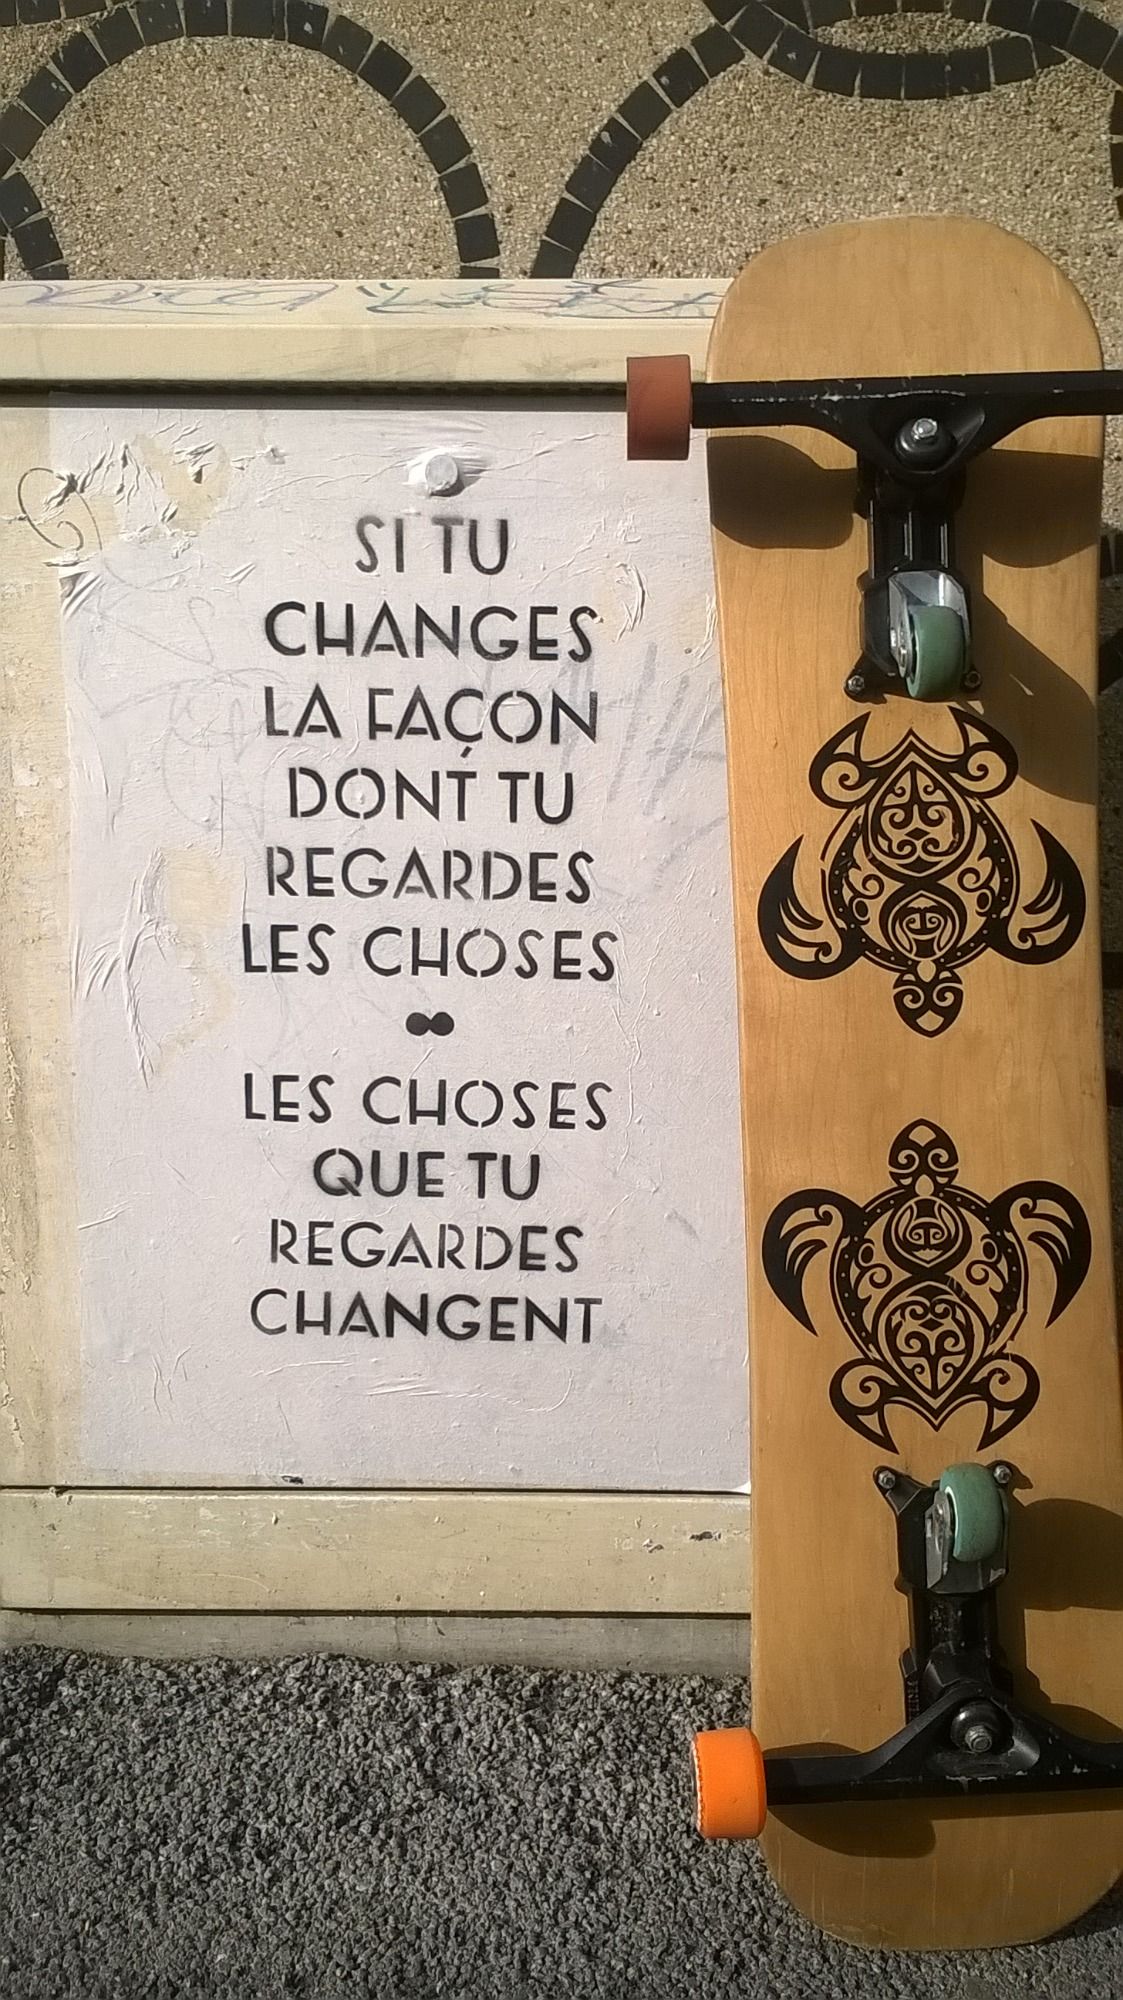 SI TU
CHANGES
LA FAÇON
DONT TU
REGARDES
LES CHOSES
LES CHOSES
QUE TU
REGARDES
CHANGENT